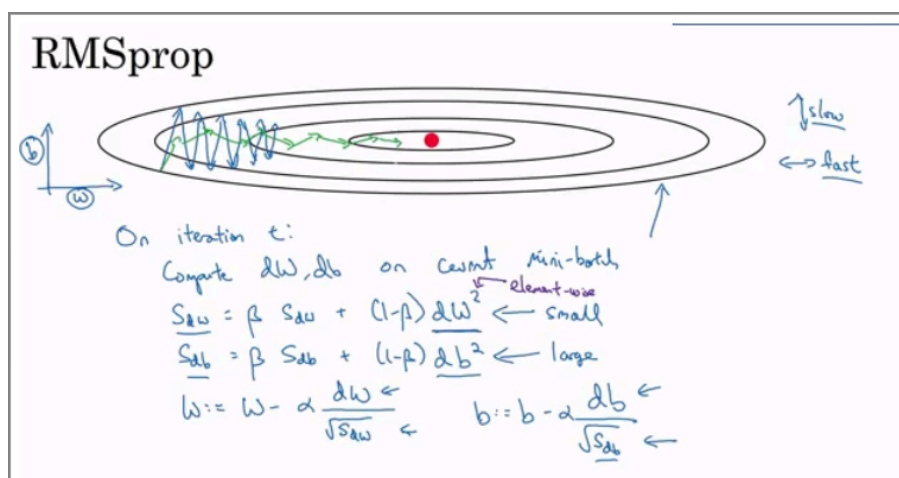 RMSprop
slow
fast
b
w
On iteration t:
Compute dW, db on current mini-batch
element-wise
S_dw = β S_dw + (1-β) dW² ← small
S_db = β S_db + (1-β) db² ← large
W := W - α dW / √S_dw ← ← b := b - α db / √S_db ← ←